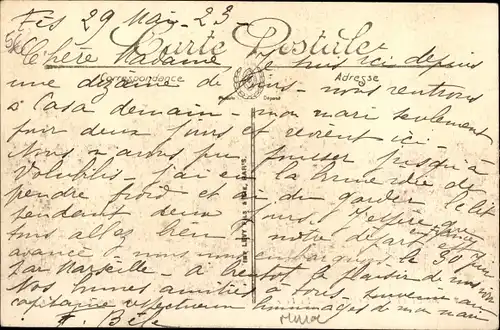 Fès 29 Mai 23
Chère Madame
Carte Postale
Je suis ici depuis
Correspondance
Adresse
une dizaine de jours - nous rentrons
à Casa demain - mon mari seulement
pour deux jours et revient ici -
Nous n'avons pu pousser jusqu'à
Volubilis j'ai eu la de
prendre froid et ai dû garder le lit
pendant deux jours. J'espère que
tous allez bien notre départ est
avancé & nous nous embarquons le 30 Juin
par Marseille - à bientôt le plaisir de
Nos bonnes amitiés à tous, souvenir au
capitaine hommages de mon mari
F.